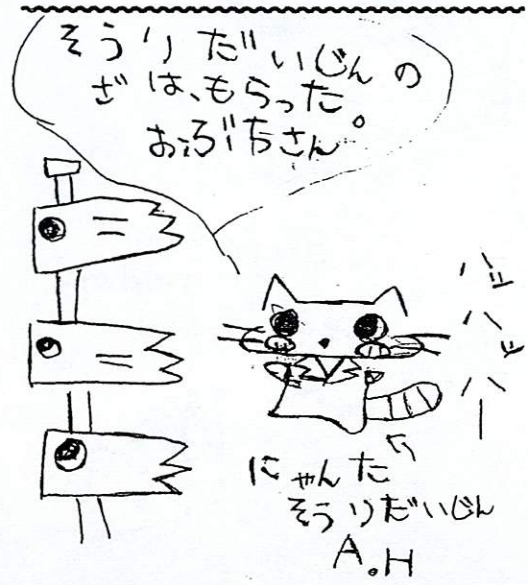 そうりだいじんの
ざは、もらった
おぶちさん。
ハッ
ハッ
ハー
にゃんた
そうりだいじん
A.H